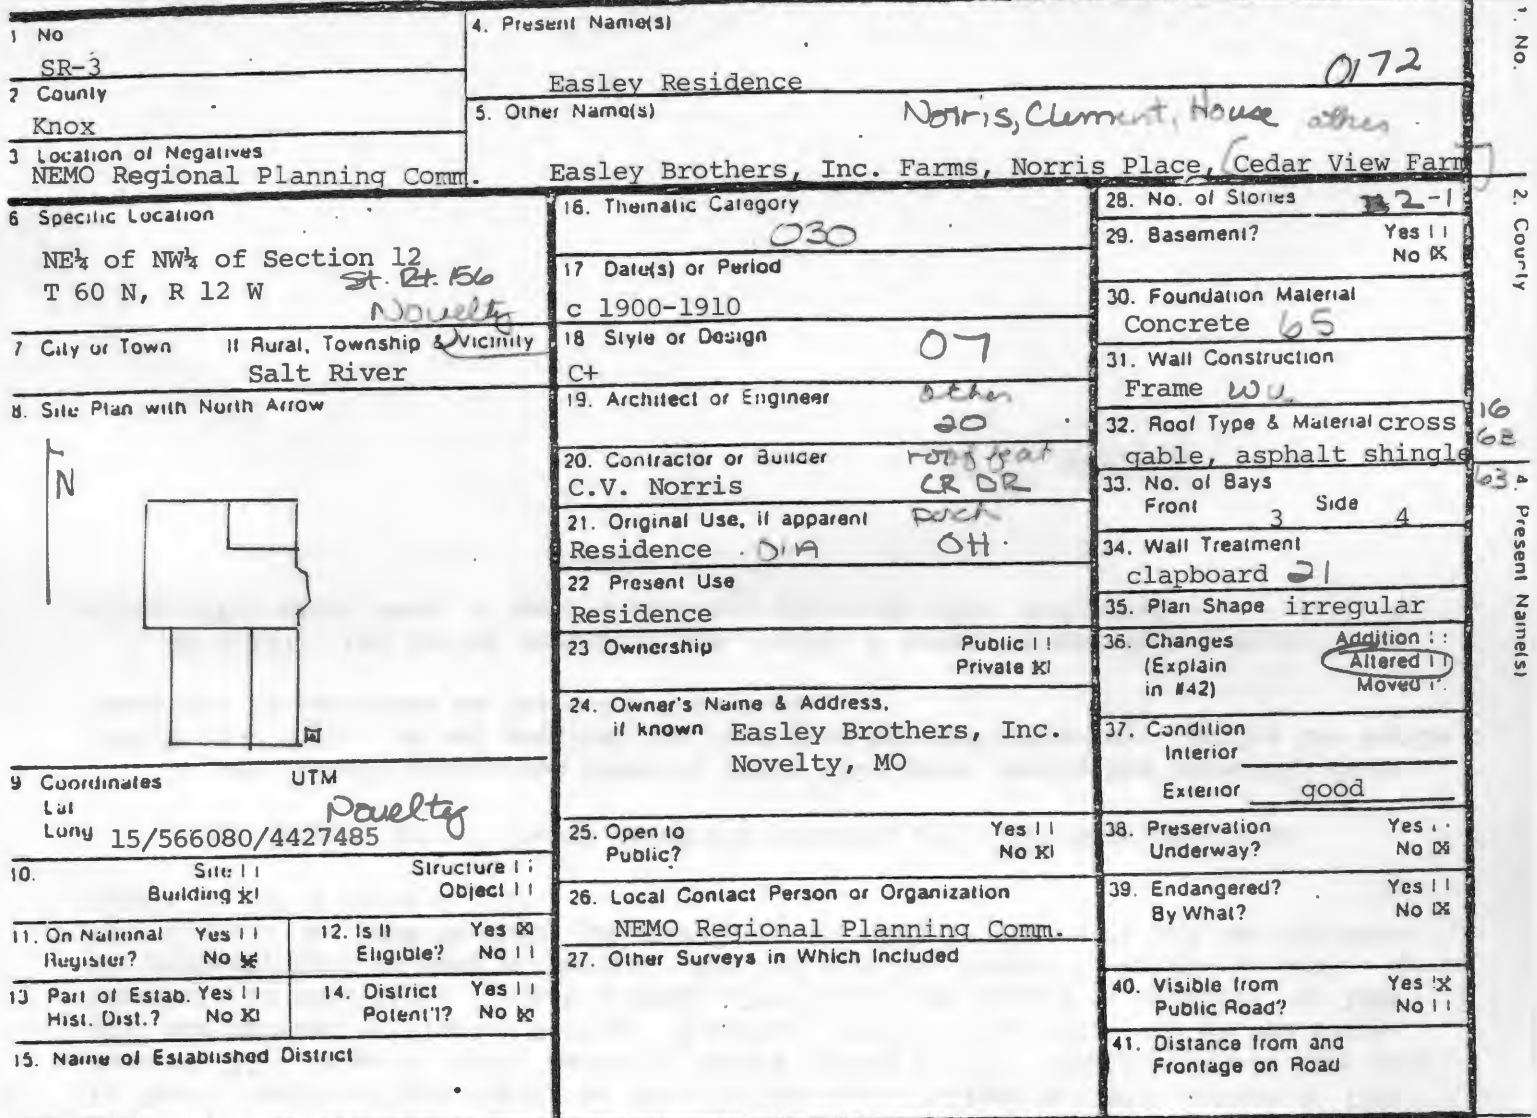 1 No
SR-3
2 County
Knox
3 Location of Negatives
NEMO Regional Planning Comm.
4. Present Name(s)
0172
Easley Residence
5. Other Name(s)
Norris, Clement, House other
Easley Brothers, Inc. Farms, Norris Place, (Cedar View Farm
6 Specific Location
NE¼ of NW¼ of Section 12
T 60 N, R 12 W
St. Rt. 156
Novelty
7 City or Town If Rural, Township & Vicinity
Salt River
8. Site Plan with North Arrow
N
9 Coordinates UTM
Lat
Novelty
Long 15/566080/4427485
10. Site
Structure
Building X
Object
11. On National Register? Yes
No X
12. Is It Eligible? Yes X
No
13 Part of Estab. Hist. Dist.? Yes
No X
14. District Potent'l? Yes
No X
15. Name of Established District
16. Thematic Category
030
17 Date(s) or Period
c 1900-1910
18 Style or Design 07
C+
19. Architect or Engineer other
20
20. Contractor or Builder roof feat
C.V. Norris CR DR
21. Original Use, if apparent porch
Residence 01A OH
22 Present Use
Residence
23 Ownership Public
Private X
24. Owner's Name & Address,
if known Easley Brothers, Inc.
Novelty, MO
25. Open to Public? Yes
No X
26. Local Contact Person or Organization
NEMO Regional Planning Comm.
27. Other Surveys in Which Included
28. No. of Stories 2-1
29. Basement? Yes
No X
30. Foundation Material
Concrete 65
31. Wall Construction
Frame WU
32. Roof Type & Material cross
gable, asphalt shingle
16
62
63
33. No. of Bays
Front 3 Side 4
34. Wall Treatment
clapboard 21
35. Plan Shape irregular
36. Changes Addition
(Explain Altered
in #42) Moved
37. Condition
Interior
Exterior good
38. Preservation Underway? Yes
No X
39. Endangered? Yes
By What? No X
40. Visible from Public Road? Yes X
No
41. Distance from and
Frontage on Road
1. No.
2. County
4. Present Name(s)